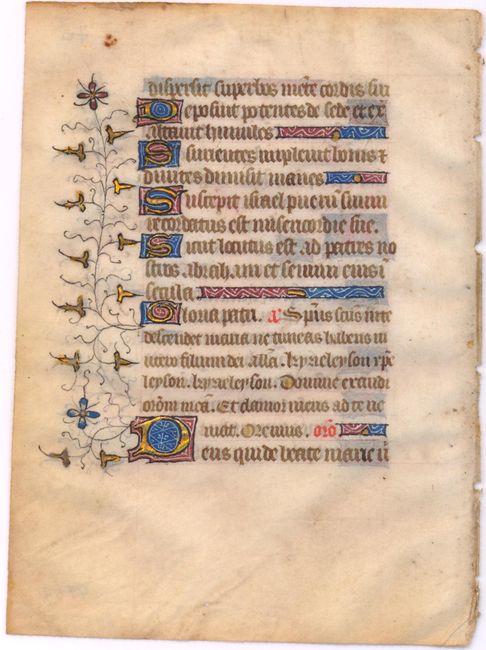 dispersit superbos mēte cordis sui
Deposuit potentes de sede et ex
altauit humiles
Esurientes impleuit bonis ⁊
diuites dimisit inanes
Suscepit israel pueꝝ suum
recordatus est misericordie sue.
Sicut locutus est ad patres no
stros abraham et semini eius ī
secula.
Gloria patri. a᷍ Spūs scūs in te
descendet maria ne timeas habens in
utero filium dei. alla. kyrieleyson xp̄e
leyson. kyrieleyson. Domine exaudi
orōm meā. Et clamor meus ad te ue
niat. Oremus. orō
Deus qui de beate marie ū